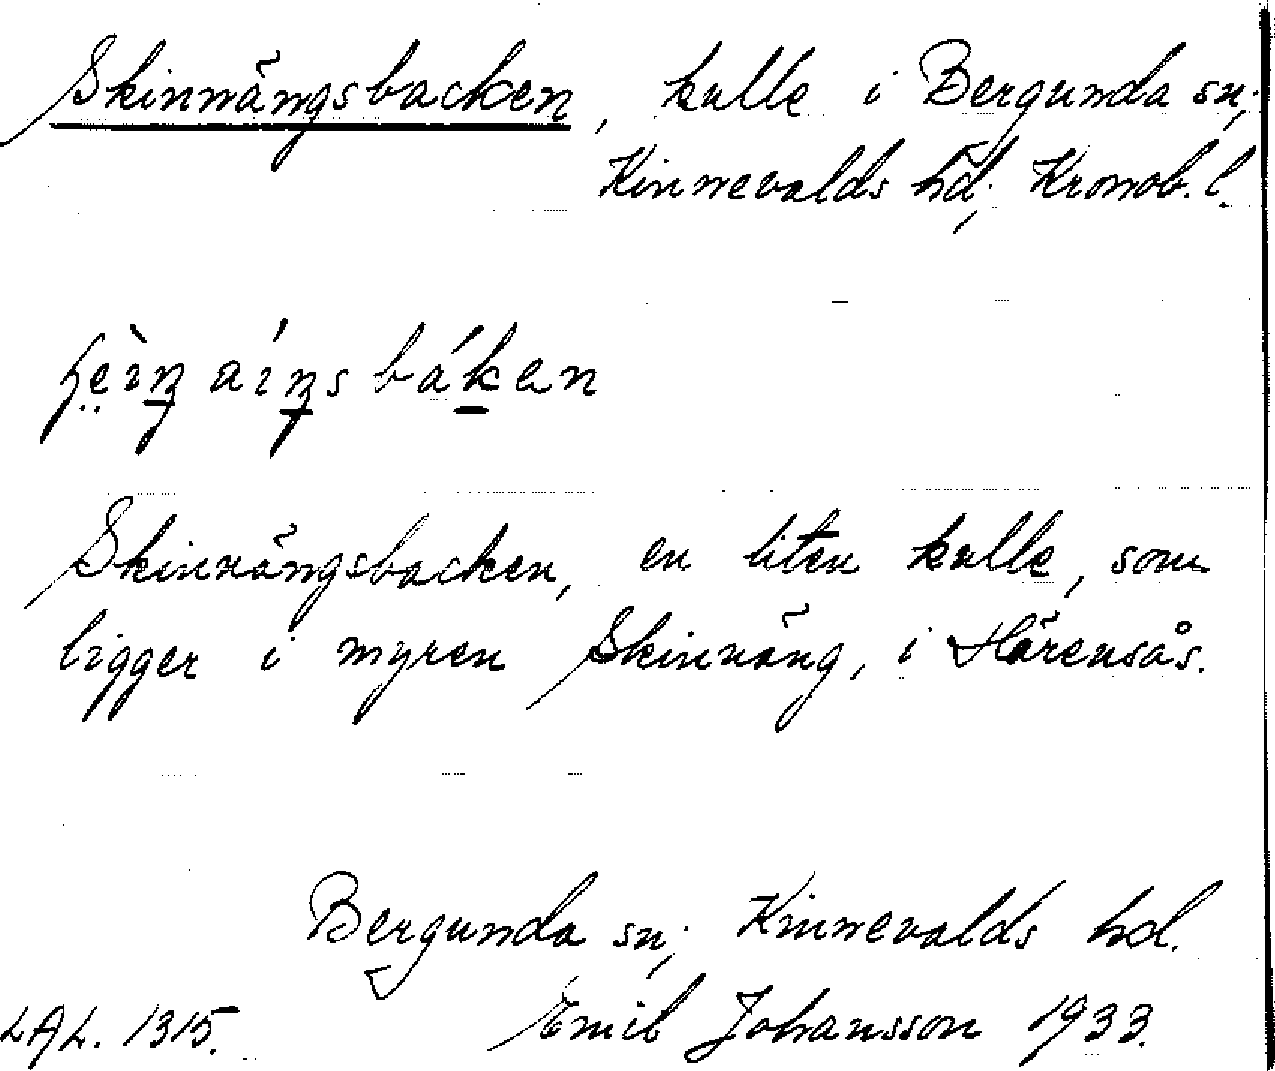 Skinnängsbacken, kulle i Bergunda sn,
Kinnevalds hd, Kronob. l.
Skinnängsbacken, en liten kulle, som
ligger i myren Skinnäng, i Härensås.
Bergunda sn, Kinnevalds hd.
LAL. 1315. Emil Johansson 1933.